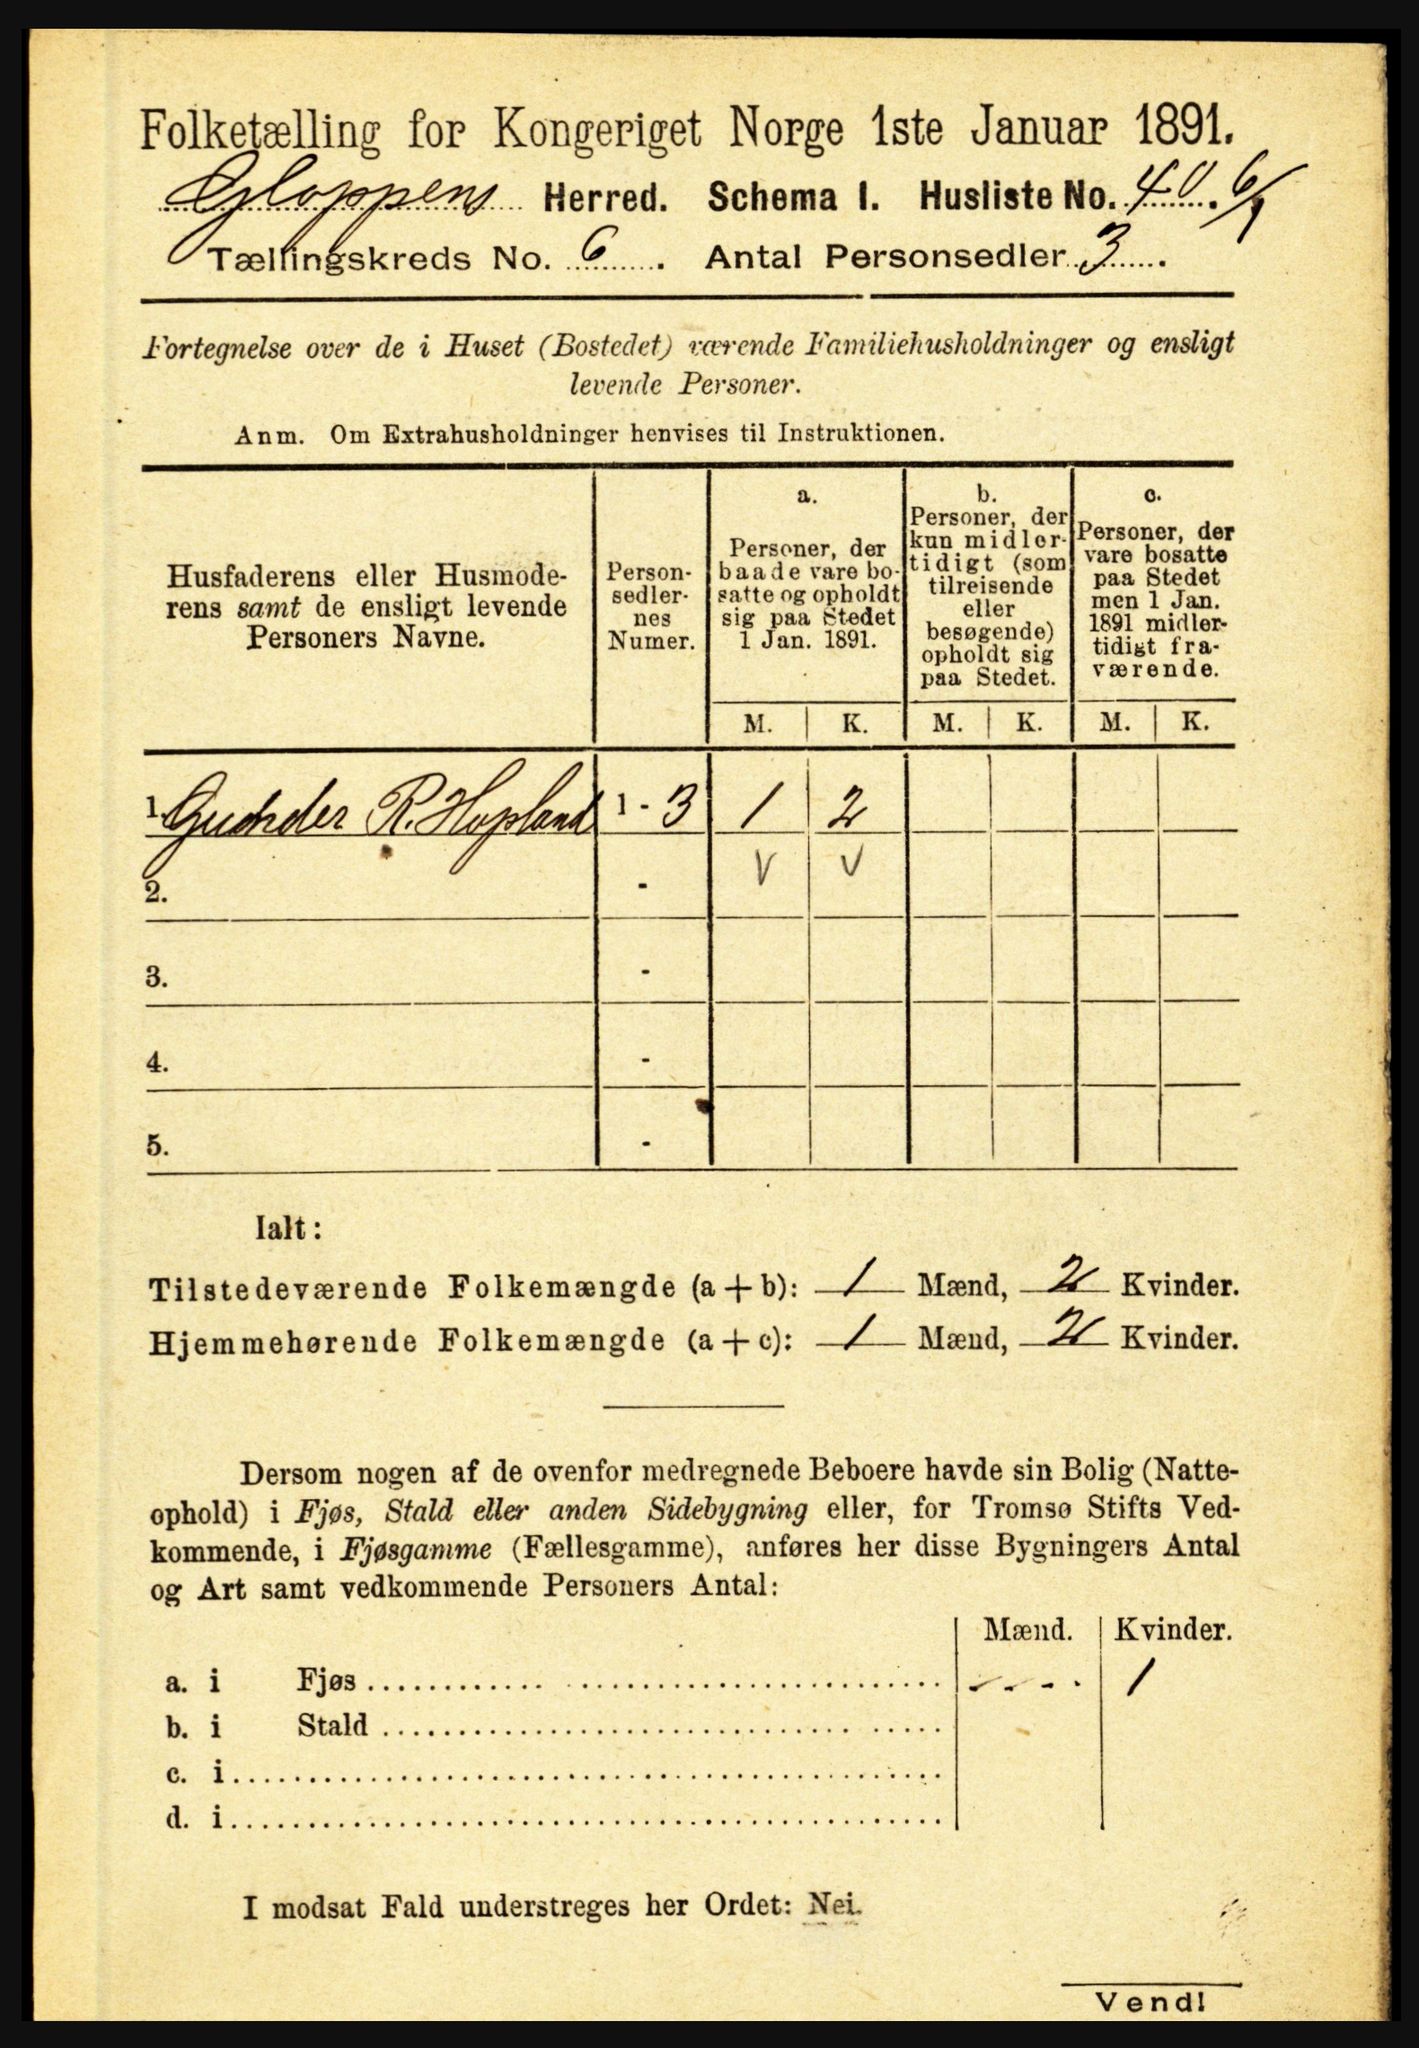 Folketælling for Kongeriget Norge 1ste Januar 1891.
Gloppens Herred. Schema I. Husliste No. 40. 6/1
Tællingskreds No. 6. Antal Personsedler 3.
Fortegnelse over de i Huset (Bostedet) værende Familiehusholdninger og ensligt
levende Personer.
Anm. Om Extrahusholdninger henvises til Instruktionen.
Husfaderens eller Husmode-
rens samt de ensligt levende
Personers Navne.
Person-
sedler-
nes
Numer.
a.
Personer, der
baade vare bo-
satte og opholdt
sig paa Stedet
1 Jan. 1891.
b.
Personer, der
kun midler-
tidigt (som
tilreisende
eller
besøgende)
opholdt sig
paa Stedet.
c.
Personer, der
vare bosatte
paa Stedet
men 1 Jan.
1891 midler-
tidigt fra-
værende.
M. K. M. K. M. K.
1. R. Hopland 1 - 3 1 2
2. - V V
3. -
4. -
5. -
Ialt:
Tilstedeværende Folkemængde (a + b): 1 Mænd, 2 Kvinder.
Hjemmehørende Folkemængde (a + c): 1 Mænd, 2 Kvinder.
Dersom nogen af de ovenfor medregnede Beboere havde sin Bolig (Natte-
ophold) i Fjøs, Stald eller anden Sidebygning eller, for Tromsø Stifts Ved-
kommende, i Fjøsgamme (Fællesgamme), anføres her disse Bygningers Antal
og Art samt vedkommende Personers Antal:
Mænd. Kvinder.
a. i Fjøs 1
b. i Stald
c. i
d. i
I modsat Fald understreges her Ordet: Nei.
Vend!